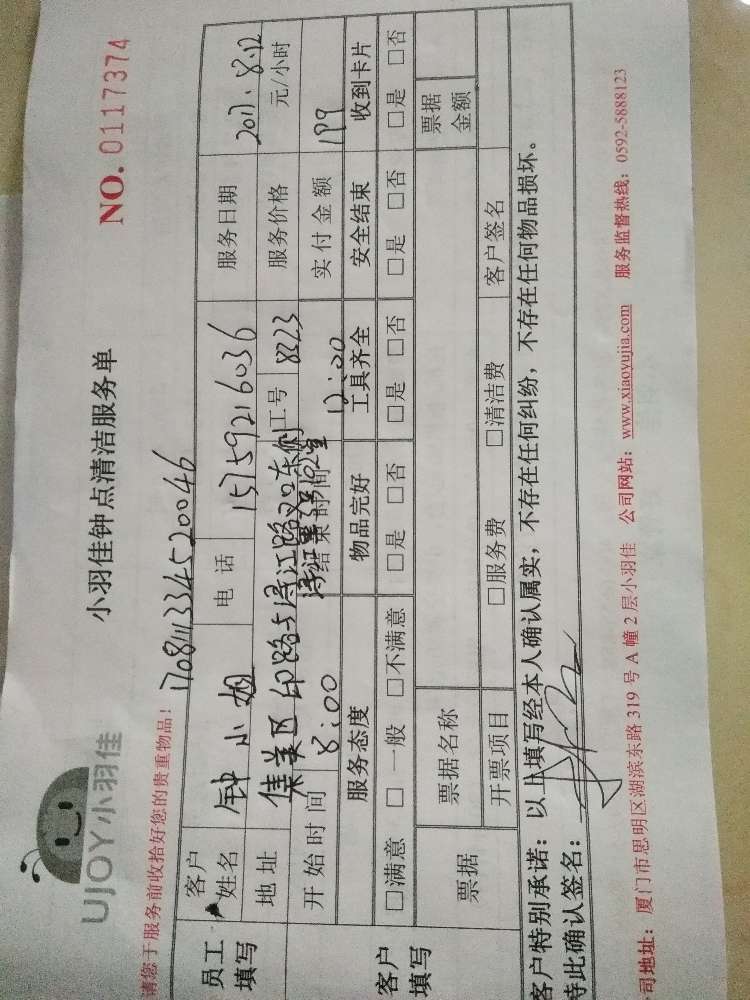 UJOY小羽佳
小羽佳钟点清洁服务单
NO. 0117374
请您于服务前收拾好您的贵重物品！
170811334520046
员工填写
客户姓名 钟小姐 电话 15759216036 服务日期 2017.8.12
地址 集美区 路与浔江路交叉口东侧 工号 8223 服务价格 元/小时
开始时间 8:00 结束时间 12:00 实付金额 199
客户填写
服务态度 物品完好 工具齐全 安全结束 收到卡片
□满意 □一般 □不满意 □是 □否 □是 □否 □是 □否 □是 □否
票据 票据名称 票据金额
开票项目 □服务费 □清洁费 客户签名
客户特别承诺：以上填写经本人确认属实，不存在任何纠纷，不存在任何物品损坏。
特此确认签名：
司地址：厦门市思明区湖滨东路319号A幢2层小羽佳 公司网站：www.xiaoyujia.com 服务监督热线：0592-5888123